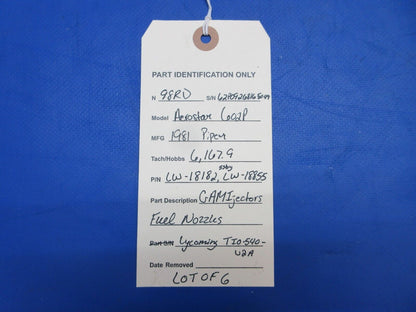 PART IDENTIFICATION ONLY
N 98RD S/N
Model Aerostar 602P
MFG 1981 Piper
Tach/Hobbs 6,167.9
P/N LW-18182, LW-18855
Part Description GAMIjectors
Fuel Nozzles
Part S/N Lycoming TIO-540-
U2A
Date Removed
LOT OF 6